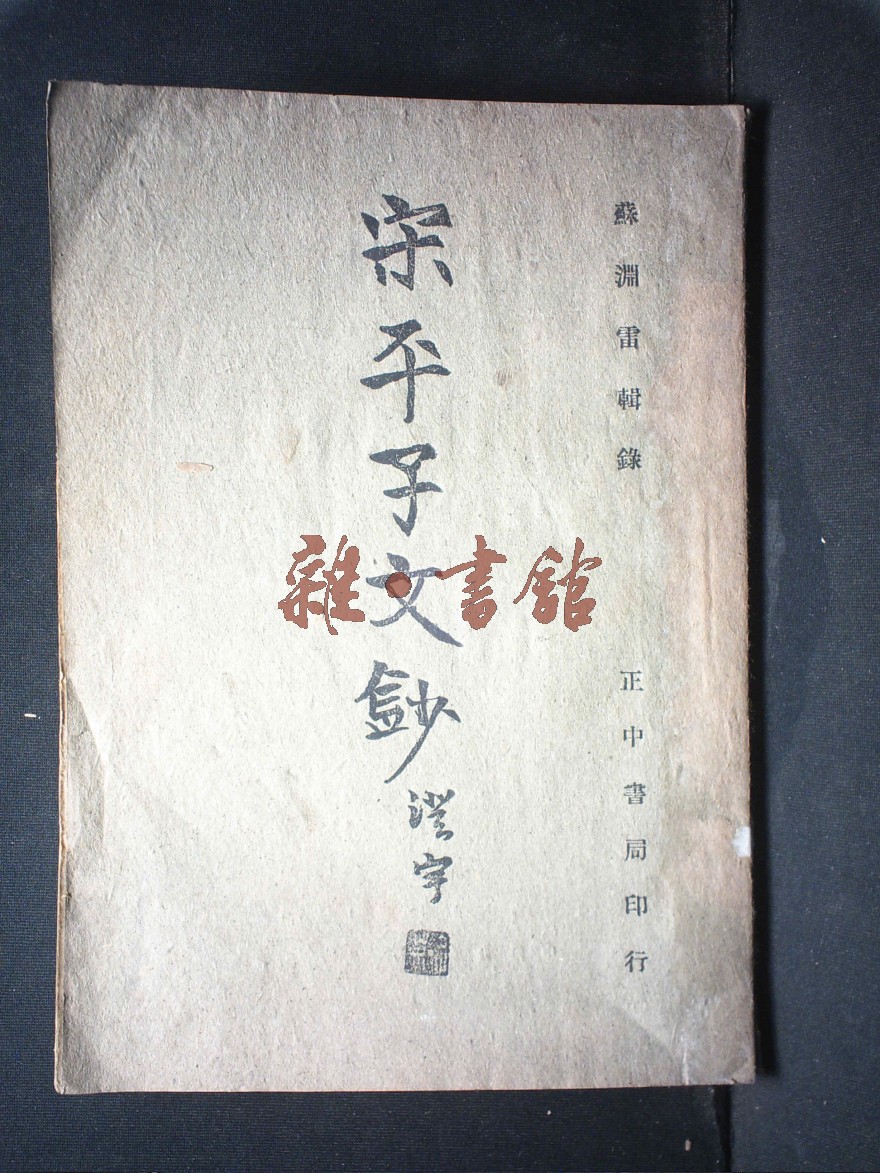 蘇淵雷輯錄
正中書局印行
宋平子文鈔
澄宇
雜書館